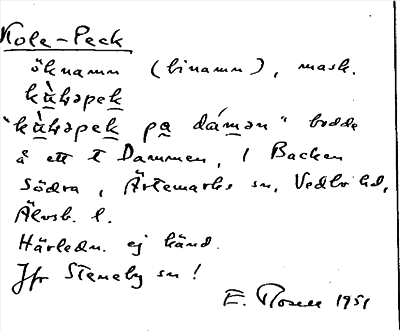 Kola-Peck
öknamn (binamn), mask.
kù̀ɫɘpek
"kù̀ɫɘpek pa dáman" bodde
å ett t Dammen, 1 Backen
Södra, Ärtemarks sn, Vedbo hd,
Älvsb. l.
Härledn. ej känd.
Jfr Steneby sn!
E. Rosell 1951